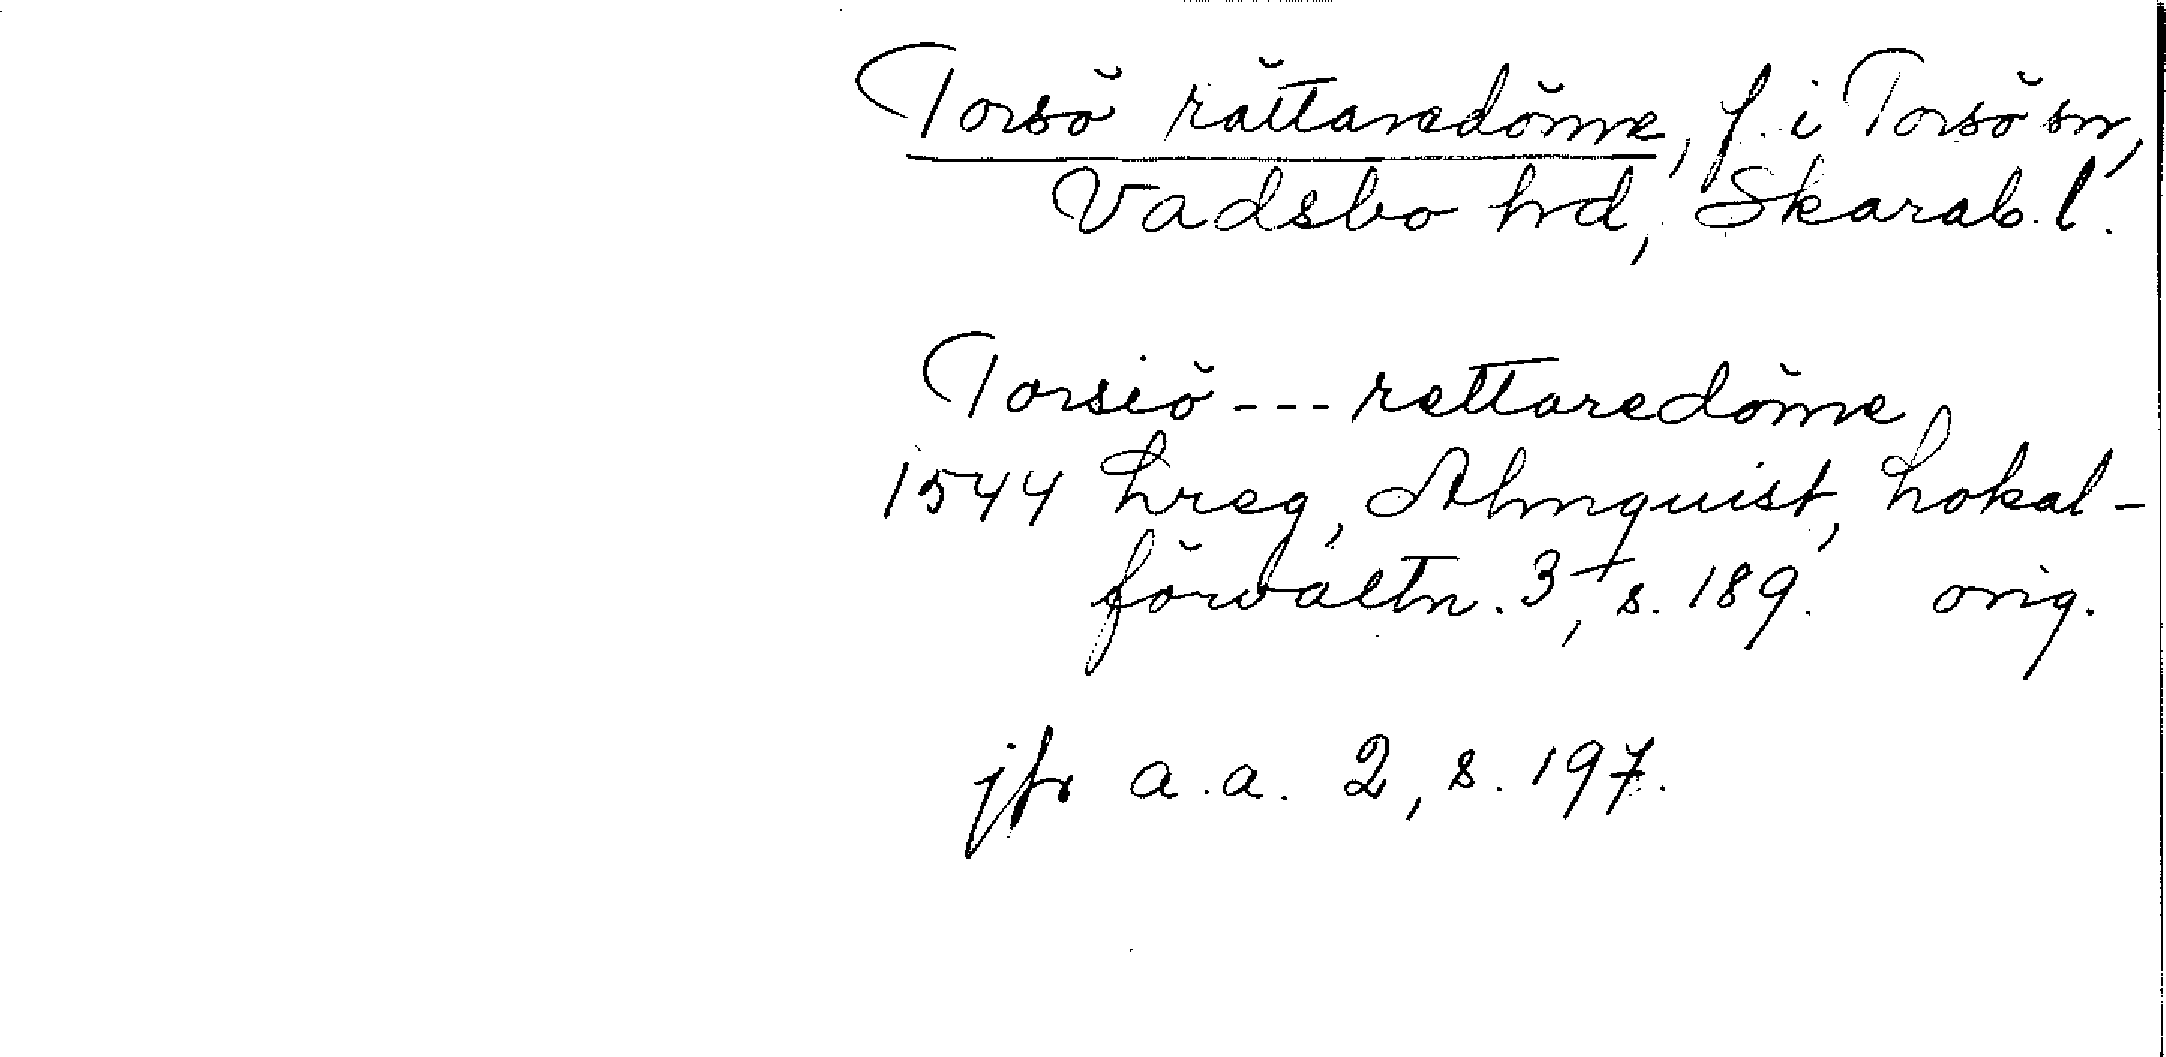 Torsö rättaredöme, f. i Torsö sn,
Vadsbo hd, Skarab. l.
Torsiö --- rettaredöme
1544 Lreg, Almquist, Lokal-
förvaltn. 3+, s. 189. orig.
jfr a.a. 2, s. 197.